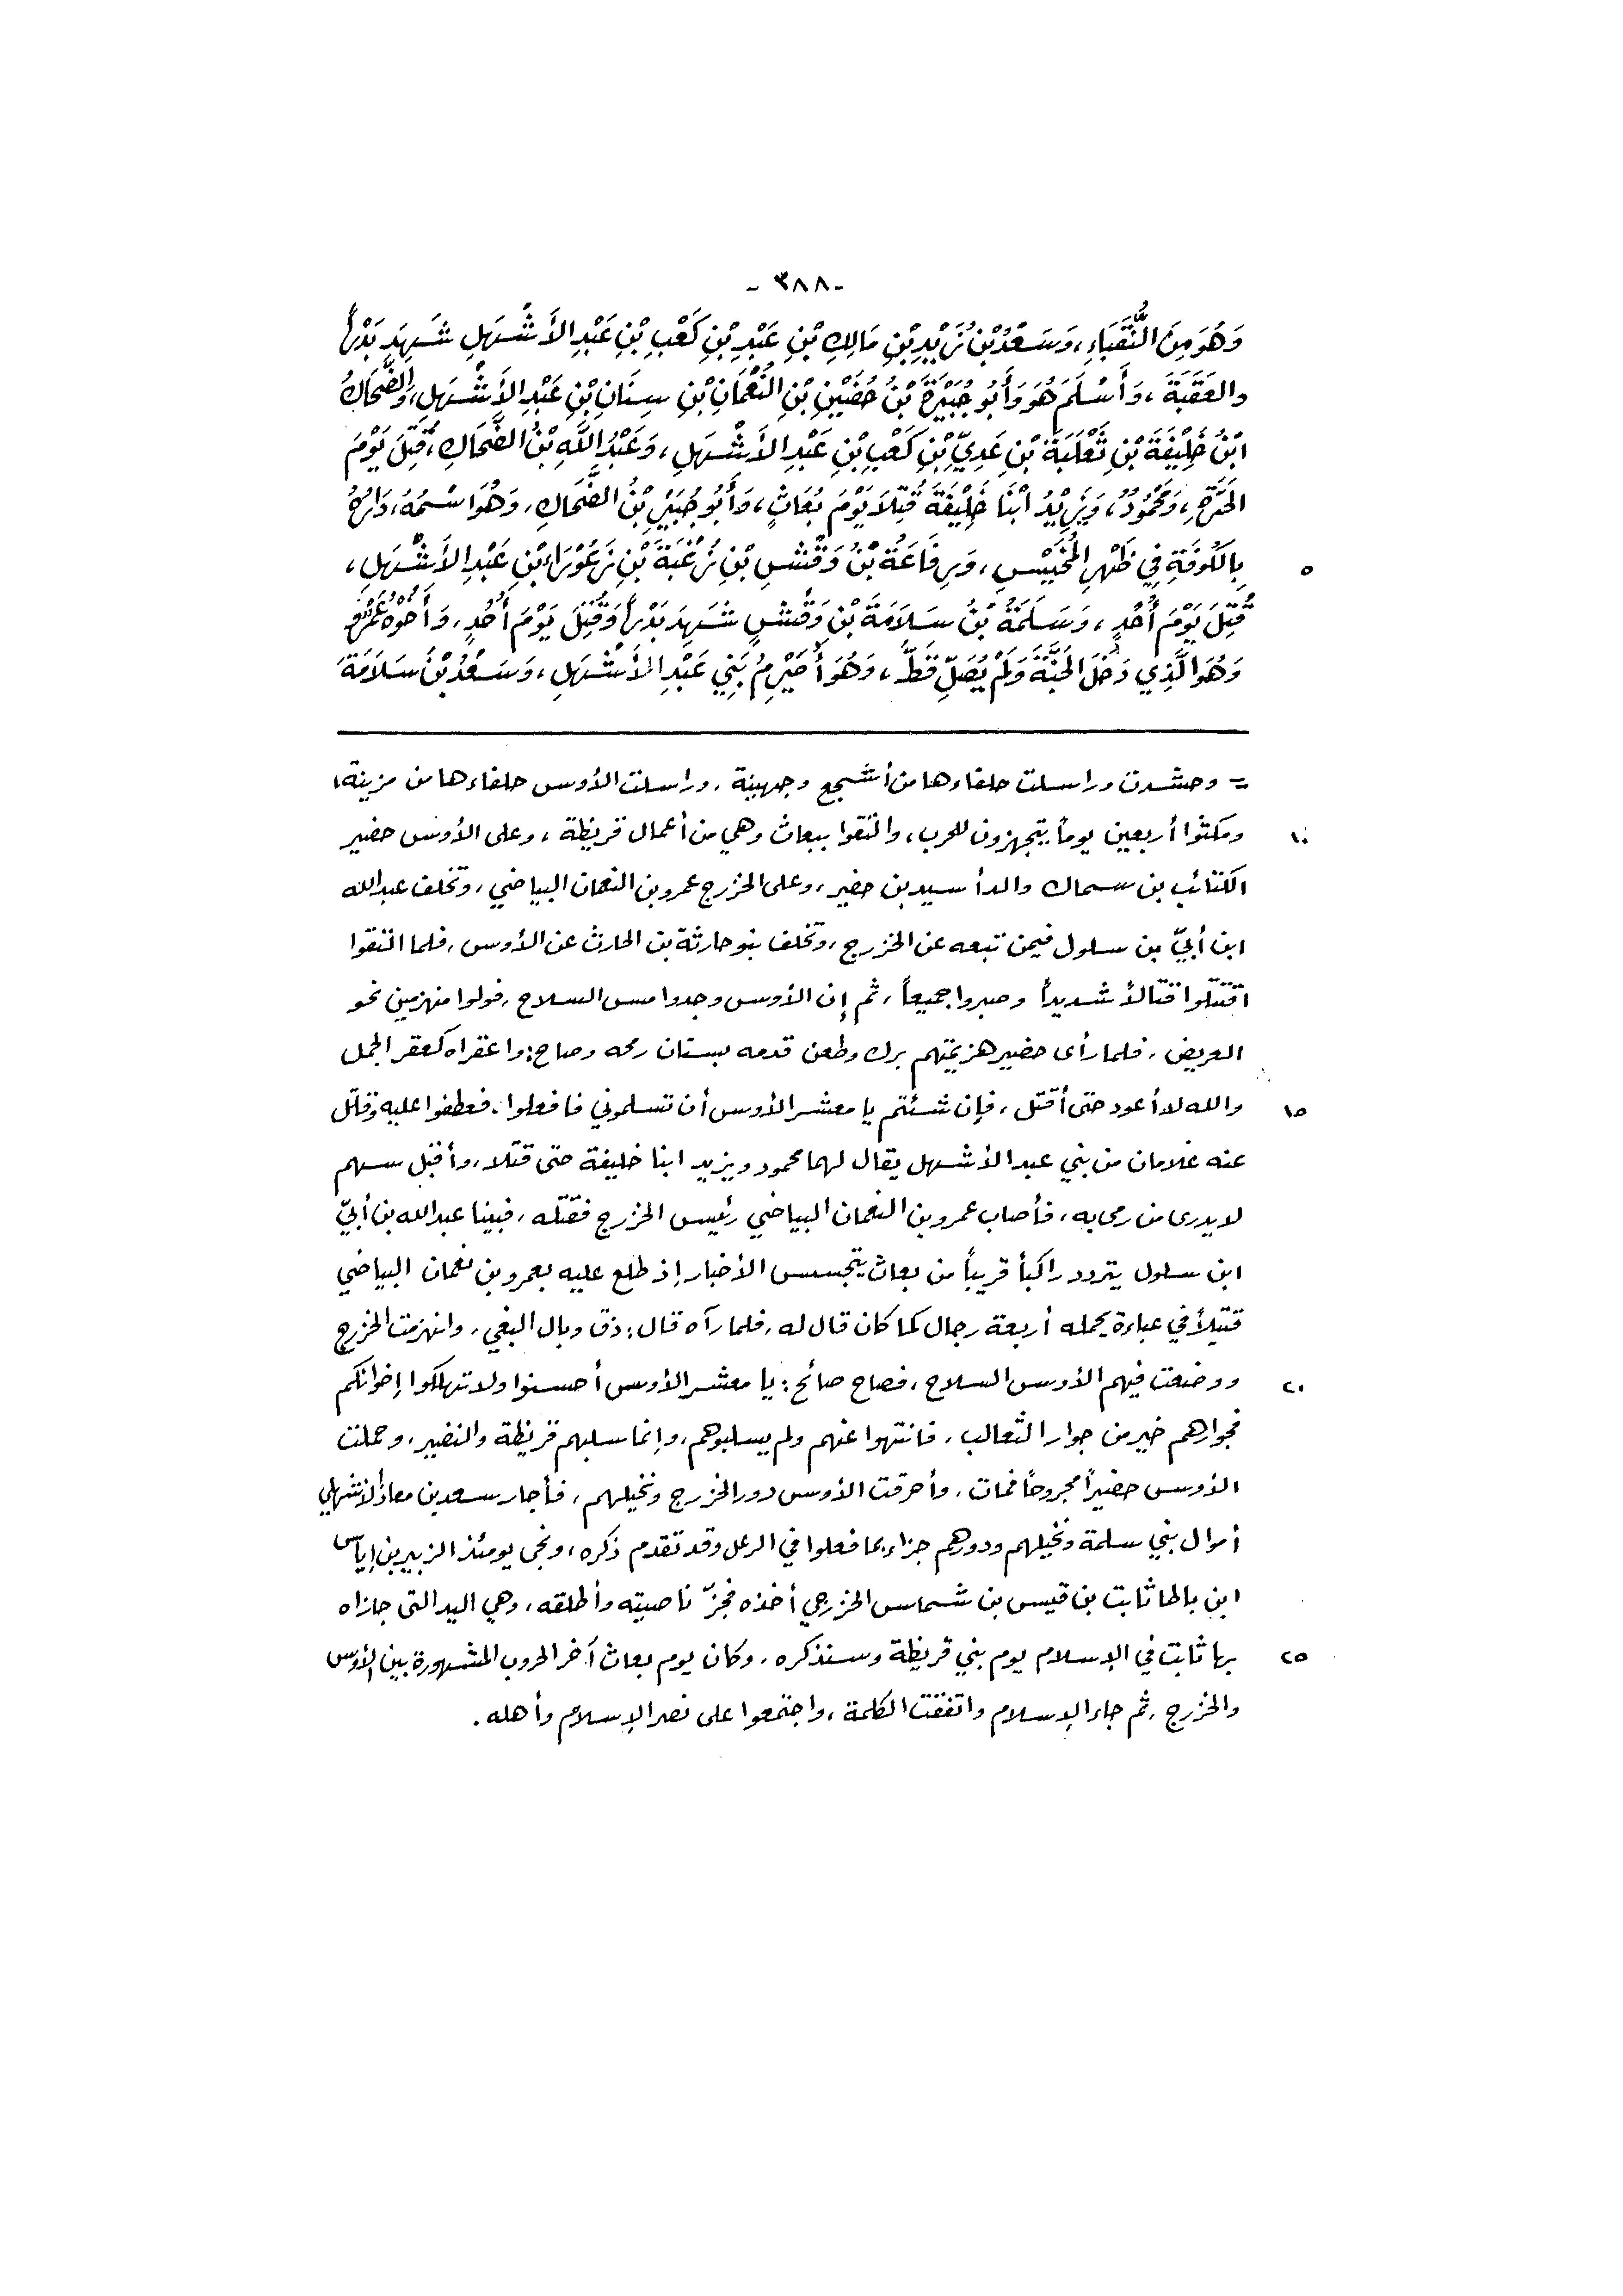 -٣٨٨-
وَهُوَ مِنَ النُّقَبَاءِ، وَسَعْدُ بْنُ زَيْدِ بْنِ مَالِكِ بْنِ عَبْدِ بْنِ كَعْبِ بْنِ عَبْدِ الأَشْهَلِ شَهِدَ بَدْراً
والعَقَبَةَ، وَأَسْلَمَ هُوَ وَأَبُو جُبَيْرَةَ بْنُ حُصَيْنِ بْنِ النُّعْمَانِ بْنِ سِنَانِ بْنِ عَبْدِ الأَشْهَلِ، وَالضَّحَّاكُ
ابْنُ خَلِيْفَةَ بْنِ ثَعْلَبَةَ بْنِ عَدِيِّ بْنِ كَعْبِ بْنِ عَبْدِ الأَشْهَلِ، وَعَبْدُ اللَّهِ بْنُ الضَّحَّاكِ، قُتِلَ يَوْمَ
الحَرَّةِ، وَمَحْمُودٌ، وَيَزِيْدُ ابْنَا خَلِيْفَةَ قُتِلَا يَوْمَ بُعَاثٍ، وَأَبُو جُبَيْرِ بْنُ الضَّحَّاكِ، وَهُوَ اسْمُهُ، دَارُهُ
٥ بِالكُوفَةِ فِي ظَهْرِ المُخَيَّسِ، وَرِفَاعَةُ بْنُ وَقْشِ بْنِ زُغْبَةَ بْنِ زَعُوْرَاءَ بْنِ عَبْدِ الأَشْهَلِ،
قُتِلَ يَوْمَ أُحُدٍ، وَسَلَمَةُ بْنُ سَلَامَةَ بْنِ وَقْشٍ شَهِدَ بَدْراً وَقُتِلَ يَوْمَ أُحُدٍ، وَأَخُوهُ عَمْرٌو
وَهُوَ الَّذِي دَخَلَ الجَنَّةَ وَلَمْ يُصَلِّ قَطُّ، وَهُوَ أُصَيْرِمُ بَنِي عَبْدِ الأَشْهَلِ، وَسَعْدُ بْنُ سَلَامَةَ
= وحشدت وراسلت حلفاءها من أشجع وجهينة، وراسلت الأوس حلفاءها من مزينة،
١٠ ومكثوا أربعين يوماً يتجهزون للحرب، والتقوا ببعاث وهي من أعمال قريظة، وعلى الأوس حضير
الكتائب بن سماك والد أسيد بن حضير، وعلى الخزرج عمرو بن النعمان البياضي، وتخلف عبدالله
ابن أبيّ بن سلول فيمن تبعه عن الخزرج، وتخلف بنو حارثة بن الحارث عن الأوس، فلما التقوا
اقتتلوا قتالاً شديداً وصبروا جميعاً، ثم إن الأوس وجدوا مس السلاح، فولوا منهزمين نحو
العريض، فلما رأى حضير هزيمتهم برك وطعن قدمه بسنان رمحه وصاح: وا عقراه كعقر الجمل
١٥ والله لا أعود حتى أقتل، فإن شئتم يا معشر الأوس أن تسلموني فافعلوا، فعطفوا عليه وقاتل
عنه غلامان من بني عبد الأشهل يقال لهما محمود ويزيد ابنا خليفة حتى قتلا، وأقبل سهم
لا يدرى من رمى به، فأصاب عمرو بن النعمان البياضي رئيس الخزرج فقتله، فبينا عبدالله بن أبيّ
ابن سلول يتردد راكباً قريباً من بعاث يتجسس الأخبار إذ طلع عليه بعمرو بن نعمان البياضي
قتيلاً في عباءة يحمله أربعة رجال كما كان قال له، فلما رآه قال: ذق وبال البغي، وانهزمت الخزرج
٢٠ ووضعت فيهم الأوس السلاح، فصاح صائح: يا معشر الأوس أحسنوا ولا تهلكوا إخوانكم
فجوارهم خير من جوار الثعالب، فانتهوا عنهم ولم يسلبوهم، وإنما سلبهم قريظة والنضير، وحملت
الأوس حضيراً مجروحاً فمات، وأحرقت الأوس دور الخزرج ونخيلهم، فأجار سعد بن معاذ الأشهلي
أموال بني سلمة ونخيلهم ودورهم جزاء بما فعلوا في الرعل وقد تقدم ذكره، ونجى يومئذ الزبير بن إياس
ابن باطا ثابت بن قيس بن شماس الخزرجي أخذه فجزّ ناصيته وأطلقه، وهي اليد التي جازاه
٢٥ بها ثابت في الإسلام يوم بني قريظة وسنذكره، وكان يوم بعاث آخر الحروب المشهورة بين الأوس
والخزرج، ثم جاء الإسلام واتفقت الكلمة، واجتمعوا على نصر الإسلام وأهله.